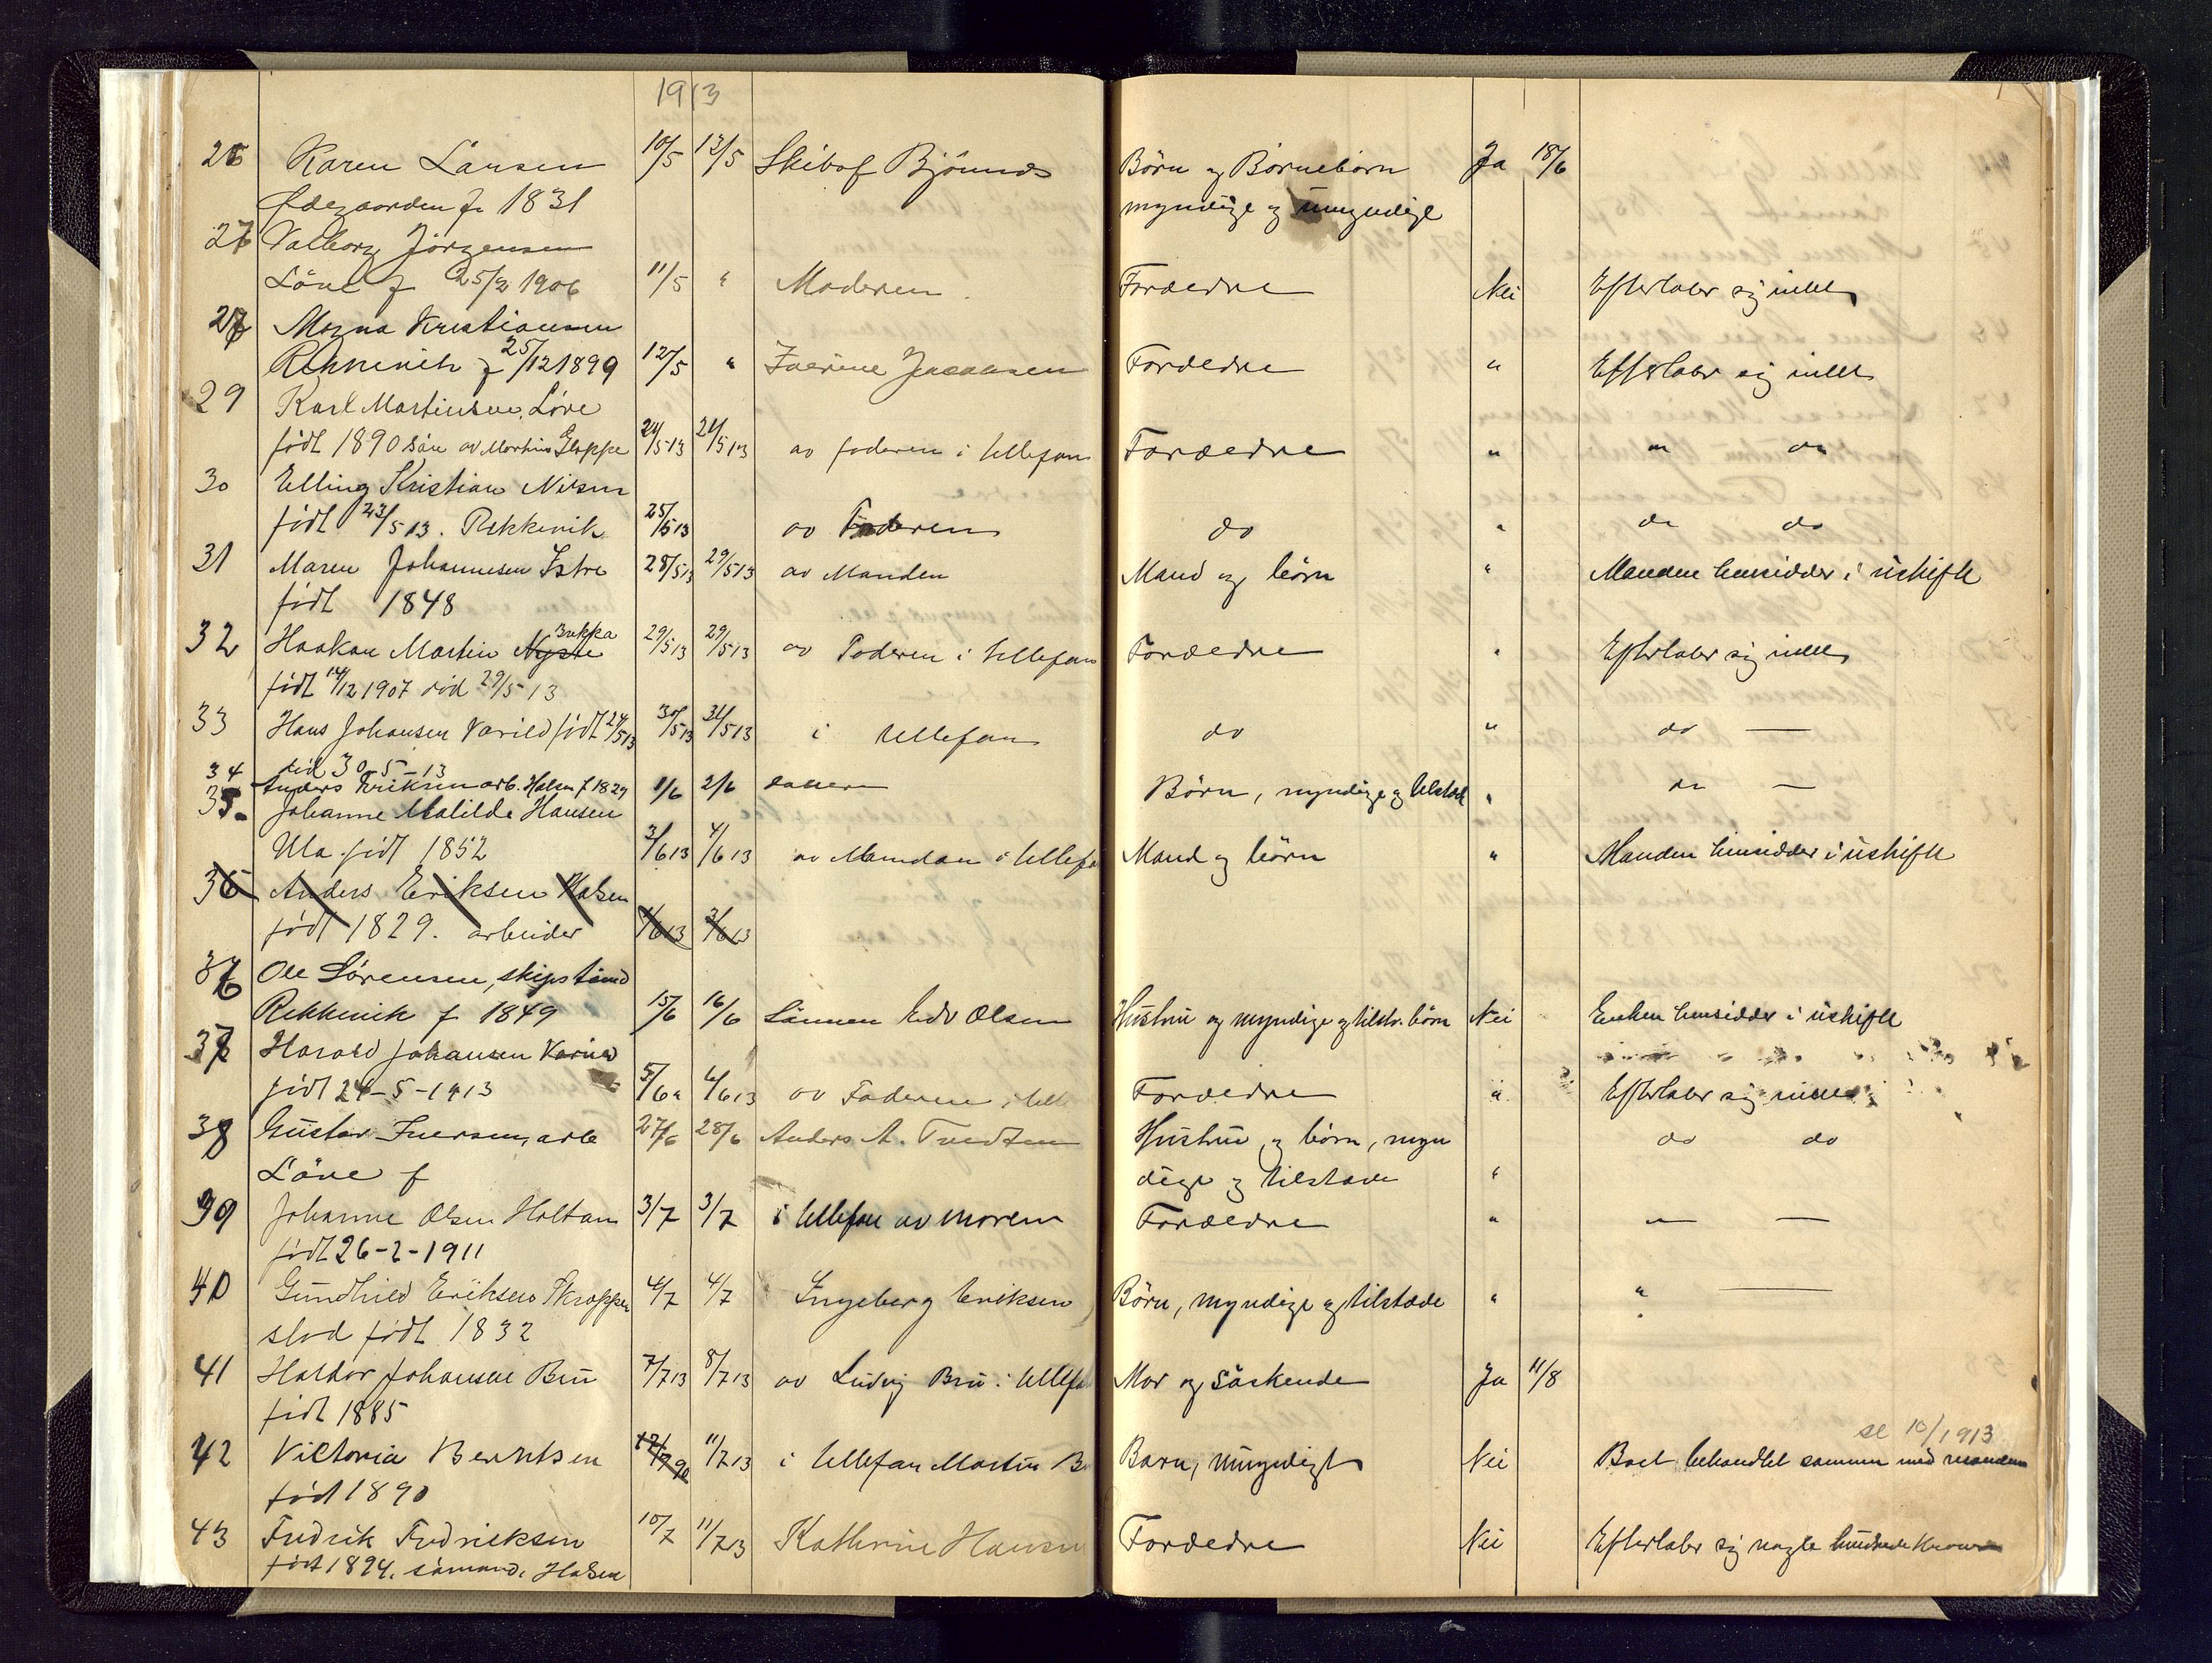 1913
26 Karen Larsen 10/5 12/5 Skibsf Bjönnes Börn og Börnebörn Ja 18/6
Ødegaarden f. 1831 myndige og umyndige
27 Valborg Jörgensen
Löve f 25/2 1906 11/5 " Moderen. Forældre Nei Efterlater sig intet
28 Magna Kristiansen
Rekkevik f 25/12 1899 12/5 " Jacobsen Forældre " Efterlater sig intet
29 Karl Martinsen, Löve
födt 1890 sön av Martin Gloppe 24/5 13 24/5 13 av faderen i tellefon Forældre " " do
30 Elling Kristian Nilsen
födt 23/5 13. Rekkevik 25/5 13 av Faderen do " do do
31 Maren Johannesen Istre 28/5 13 29/5 13 av Manden Mand og börn " Manden hensidder i uskifte
födt 1848
32 Haakon Martin Nyste Bukka 29/5 13 29/5 13 av Faderen i tellefon Forældre " Efterlater sig intet
födt 14/12 1907 död 29/5 13
33 Hans Johansen Varild födt 24/5 13 30/5 13 31/5 13 i tellefon do " do —
död 30-5-13
34 Anders Eriksen arb. Halsen f 1829 1/6 2/6 Börn, myndige og tilstede " do —
35. Johanne Matilde Hansen
Ula födt 1852 3/6 13 4/6 13 av Manden i tellefo Mand og börn " Manden hensidder i uskifte
36 Anders Eriksen Halsen
födt 1829. arbeider 1/6 13 3/6 13
36 Ole Sörensen, skipstömd
Rekkevik f 1849 15/6 16/6 Sönnen Edv Olsen Hustru og myndige og tilst. börn Nei Enken hensidder i uskifte
37 Harald Johansen Varild
födt 24-5-1913 5/6 " 6/6 13 av Faderen i telle Forældre " Efterlater sig intet
38 Gustav Iversen, arb 27/6 28/6 Anders A. Tvedten Hustru og börn, myn do do
Löve f dige og tilstede "
39 Johanne Olsen Holtan 3/7 3/7 i tellefon av moren Forældre " " —
födt 26-2-1911
40 Gundhild Eriksen Skroppe 4/7 4/7 Ingeborg Eriksen Börn, myndige og tilstede " " —
stod födt 1832
41 Haldor Johansen Bru 7/7 13 8/7 13 av Ludvig Bru i tellefo Mor og Söskende Ja 11/8
födt 1885
se 10/1913
42 Viktoria Berntsen 11/7 13 i tellefon Martin B Barn, umyndigt Nei Boet behandlet sammen med mandens
född 1890
43 Fredrik Fredriksen 10/7 11/7 13 Kathrine Hansen Forældre Nei Efterlater sig nogle hundrede Kroner
födt 1894. sömand, Halsen